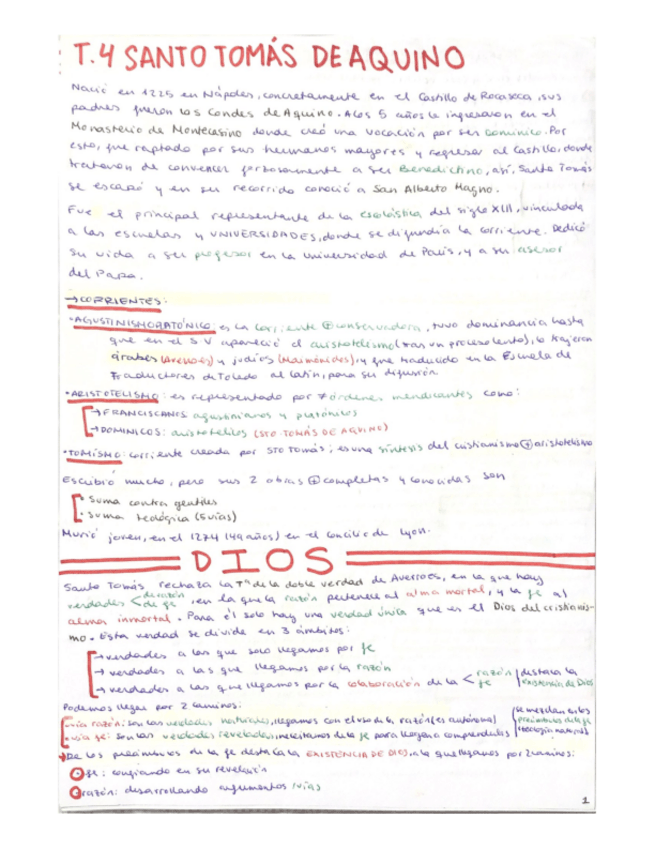 T.4 SANTO TOMÁS DE AQUINO
Nació en 1225 en Nápoles, concretamente en el Castillo de Rocaseca, sus
padres fueron los Condes de Aquino. A los 5 años le ingresaron en el
Monasterio de Montecasino donde creó una vocación por ser Dominico. Por
esto, fue raptado por sus hermanos mayores y regresar al Castillo, donde
trataron de convencer forzosamente a ser Benedictino, así, Santo Tomás
se escapó y en su recorrido conoció a San Alberto Magno.
Fue el principal representante de la escolástica del siglo XIII, vinculada
a las escuelas y UNIVERSIDADES, donde se difundía la corriente. Dedicó
su vida a ser profesor en la Universidad de París, y a ser asesor
del Papa.
→CORRIENTES:
·AGUSTINISMO PLATÓNICO: es la corriente ⊕ conservadora, tuvo dominancia hasta
que en el S V apareció el aristotelismo (tras un proceso lento), lo trajeron
árabes (Averroes) y judíos (Maimónides), y que traducido en la Escuela de
Traductores de Toledo al latín, para su difusión
·ARISTOTELISMO: es representado por órdenes mendicantes como:
→FRANCISCANOS agustinianos y platónicos
→DOMINICOS: aristotélicos (STO TOMÁS DE AQUINO)
·TOMISMO: corriente creada por STO Tomás; es una síntesis del cristianismo ⊕ aristotelismo
Escribió mucho, pero sus 2 obras ⊕ completas y conocidas son
· Suma contra gentiles
· Suma teológica (5 vías)
Murió joven, en el 1274 (49 años) en el concilio de Lyon.
DIOS
Santo Tomás rechaza la Tª de la doble verdad de Averroes, en la que hay
verdades < de razón / de fe, en la que la razón pertenece al alma mortal, y la fe al
alma inmortal. Para él solo hay una verdad única que es el Dios del cristianis-
mo. Esta verdad se divide en 3 ámbitos:
→ verdades a las que solo llegamos por fe
→ verdades a las que llegamos por la razón
→ verdades a las que llegamos por la colaboración de la < razón / fe | destaca la existencia de Dios
Podemos llegar por 2 caminos:
·vía razón: son las verdades naturales, llegamos con el uso de la razón (es autónoma)
·vía fe: son las verdades reveladas, necesitamos de la fe para llegar a comprenderlas
se mezclan en los
preámbulos de la fe
(teología natural)
→De los preámbulos de la fe destaca la EXISTENCIA DE DIOS, a la que llegamos por 2 caminos:
fe: confiando en su revelación
razón: desarrollando argumentos /vías
1